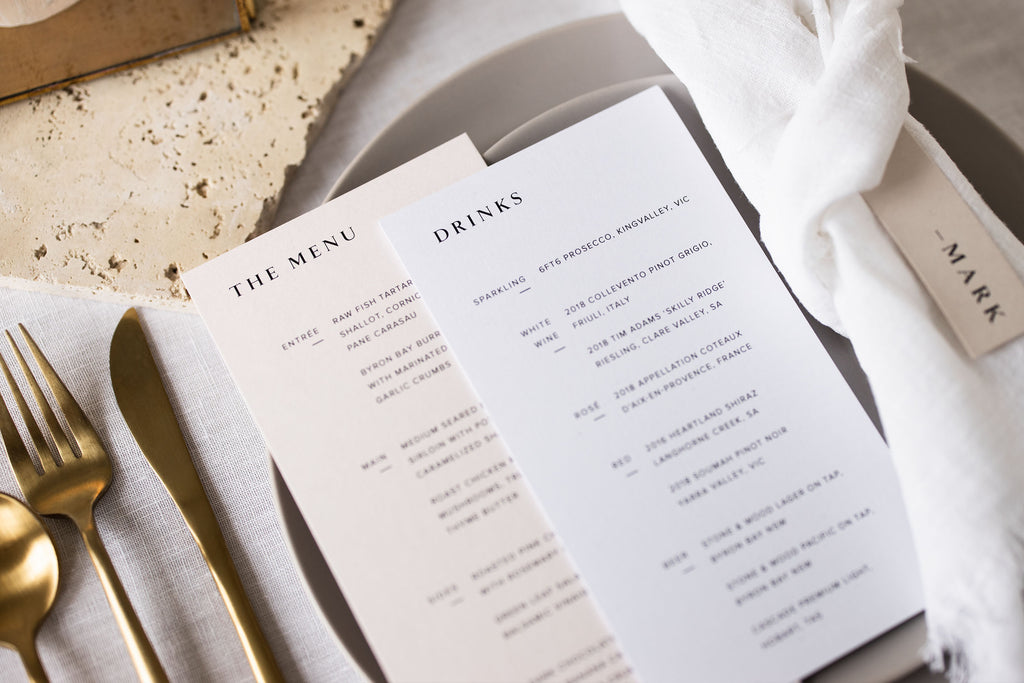 THE MENU
ENTRÉE
RAW FISH TARTAR
SHALLOT, CORNIC
PANE CARASAU
BYRON BAY BURR
WITH MARINATED
GARLIC CRUMBS
MAIN
MEDIUM SEARED
SIRLOIN WITH PO
CARAMELIZED SH
ROAST CHICKEN
MUSHROOMS,
THYME BUTTER
SIDES
ROASTED PINK
WITH ROSEMARY
GREEN LEAF
BALSAMIC
DARK CHOCOLAT
DRINKS
SPARKLING
6FT6 PROSECCO, KINGVALLEY, VIC
WHITE
WINE
2018 COLLEVENTO PINOT GRIGIO,
FRIULI, ITALY
2018 TIM ADAMS 'SKILLY RIDGE'
RIESLING, CLARE VALLEY, SA
ROSÉ
2018 APPELLATION COTEAUX
D'AIX-EN-PROVENCE, FRANCE
RED
2016 HEARTLAND SHIRAZ
LANGHORNE CREEK, SA
2018 SOUMAH PINOT NOIR
YARRA VALLEY, VIC
BEER
STONE & WOOD LAGER ON TAP,
BYRON BAY NSW
STONE & WOOD PACIFIC ON TAP,
BYRON BAY NSW
CASCADE PREMIUM LIGHT,
HOBART, TAS
–MARK